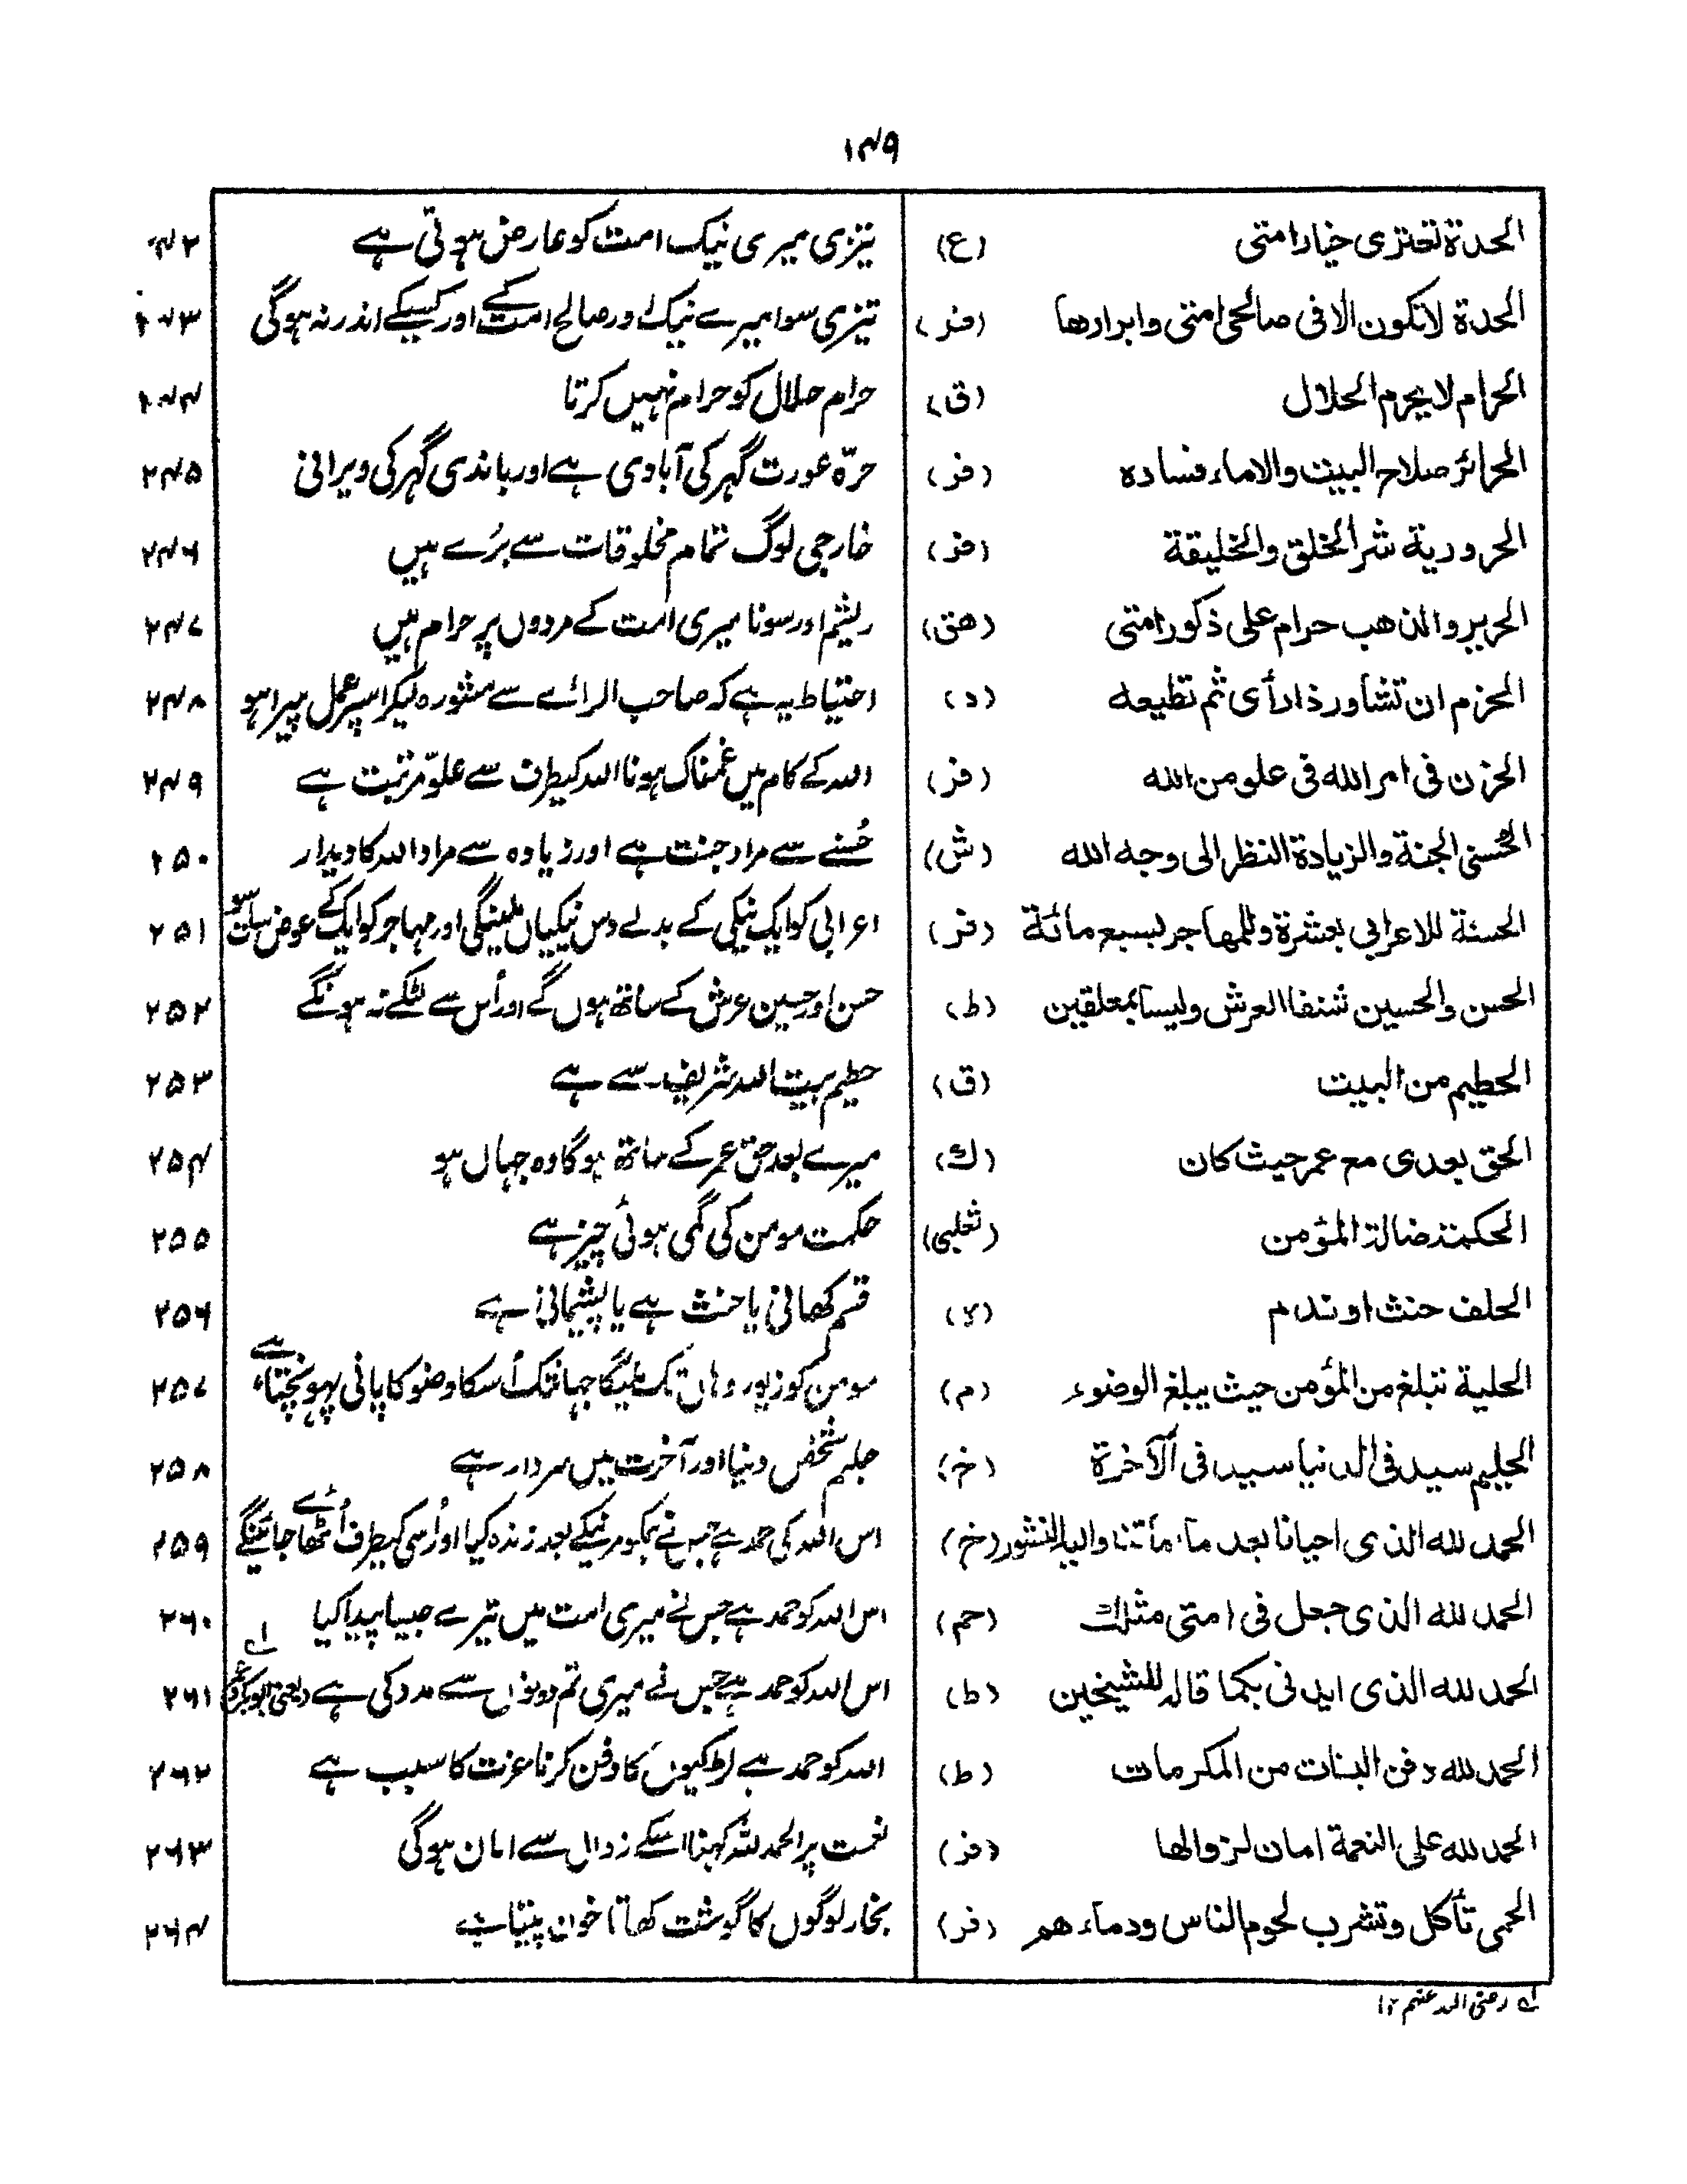 ۱۴۹
الحدة تعتری خیار امتی (ع) تیزی میری نیک امت کو عارض ہوتی ہے ۲۴۲
الحدة لا تکون الا فی صالحی امتی وابرارها (فر) تیزی سوا میرے نیک اور صالح امت کے اور کسیکے اندر نہ ہوگی ۲۴۳
الحرام لا یحرم الحلال (ق) حرام حلال کو حرام نہیں کرتا ۲۴۴
الحرائر صلاح البیت والاماء فساده (فر) حرّہ عورت گہر کی آبادی ہے اور باندی گہر کی ویرانی ۲۴۵
الحروریة شر الخلق والخلیقة (فر) خارجی لوگ تمام مخلوقات سے بُرے ہیں ۲۴۶
الحریر والذهب حرام علی ذکور امتی (هق) ریشم اور سونا میری امت کے مردوں پر حرام ہیں ۲۴۷
الحزم ان تشاور ذا رأی ثم تطیعه (د) احتیاط یہ ہے کہ صاحب الرائے سے مشورہ لیکر اسپر عمل پیرا ہو ۲۴۸
الحزن فی امر الله فی علو من الله (فر) اللہ کے کام میں غمناک ہونا اللہ کیطرف سے علوّ مرتبت ہے ۲۴۹
الحُسنی الجنة والزیادة النظر الی وجه الله (ش) حُسنے سے مراد جنت ہے اور زیادہ سے مراد اللہ کا دیدار ۲۵۰
الحسنة للاعرابی بعشرة وللمهاجر بسبع مائة (فر) اعرابی کو ایک نیکی کے بدلے دس نیکیاں ملینگی اور مہاجر کو ایک کے عوض سات سو ۲۵۱
الحسن والحسین شنفا العرش ولیسا بمعلقین (ط) حسن اور حسین عرش کے ساتھ ہوں گے اور اُس سے لٹکے نہ ہونگے ۲۵۲
الحطیم من البیت (ق) حطیم بیت اللہ شریف سے ہے ۲۵۳
الحق بعدی مع عمر حیث کان (ك) میرے بعد حق عمر کے ساتھ ہوگا وہ جہاں ہو ۲۵۴
الحکمة ضالة المؤمن (ثعلبی) حکمت مومن کی گمی ہوئی چیز ہے ۲۵۵
الحلف حنث او ندم (لا) قسم کھانی یا حنث ہے یا پشیمانی ہے ۲۵۶
الحلیة تبلغ من المؤمن حیث یبلغ الوضوء (م) مومن کو زیور وہاں تک ملیگا جہانتک اُسکا وضو کا پانی پہونچتا ہے ۲۵۷
الحلیم سید فی الدنیا سید فی الآخرة (خ) حلیم شخص دنیا اور آخرت میں سردار ہے ۲۵۸
الحمد لله الذی احیانا بعد ما امأتنا والیه النشور (خ) اس اللہ کی حمد ہے جس نے ہمکو مرنیکے بعد زندہ کیا اور اُسی کیطرف اُٹھائے جائینگے ۲۵۹
الحمد لله الذی جعل فی امتی مثلك (حم) اس اللہ کو حمد ہے جس نے میری امت میں تیرے جیسا پیدا کیا ۲۶۰
الحمد لله الذی ایدنی بکما قاله للشیخین (ط) اس اللہ کو حمد ہے جس نے میری تم دونوں سے مدد کی ہے (یعنی ابوبکر و عمر) لہ ۲۶۱
الحمد لله دفن البنات من المکرمات (ط) اللہ کو حمد ہے لڑکیوں کا دفن کرنا عزت کا سبب ہے ۲۶۲
الحمد لله علی النعمة امان لزوالها (فر) نعمت پر الحمد للہ کہنا اسکے زوال سے امان ہوگی ۲۶۳
الحمی تأکل وتشرب لحوم الناس ودماءهم (فر) بخار لوگوں کا گوشت کھاتا خون پیتا ہے ۲۶۴
لہ رضی اللہ عنہم ۱۲